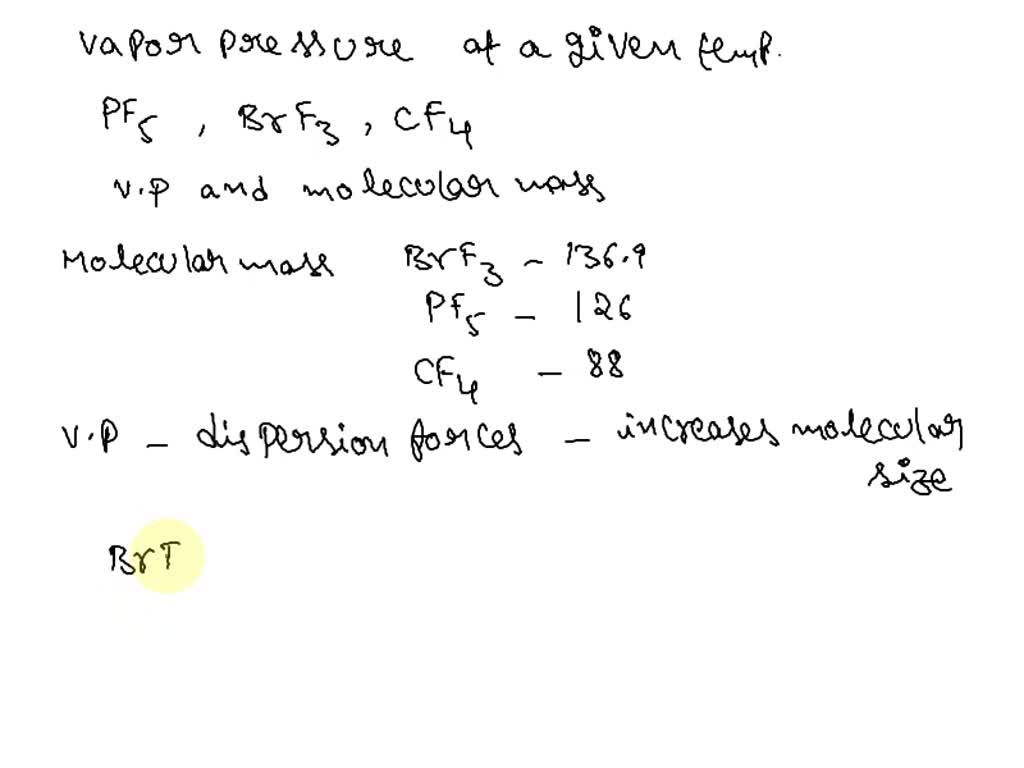 vapor pressure at a given temp.
PF5 , BrF3 , CF4
v.p and molecular mass
Molecular mass BrF3 - 136.9
PF5 - 126
CF4 - 88
V.P - dispersion forces - increases molecular size
BrF